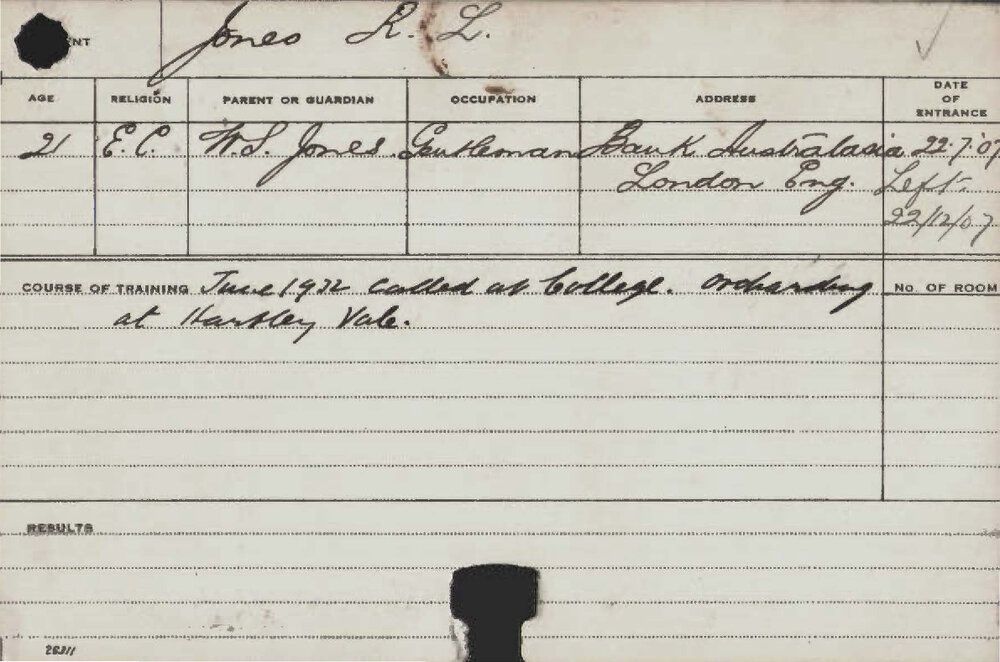 Jones R. L.
AGE RELIGION PARENT OR GUARDIAN OCCUPATION ADDRESS DATE OF ENTRANCE
21 E.C. W.S. Jones. Gentleman Bank Australasia 22.7.'07
London Eng. Left.
22/12/07
COURSE OF TRAINING June 1932 called at College. Orcharding No. OF ROOM
at Hartley Vale.
RESULTS